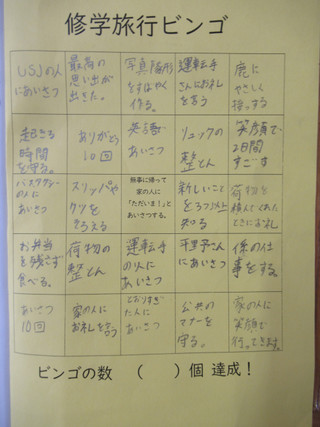 修学旅行ビンゴ
USJの人
にあいさつ
最高の
思い出が
出きた。
写真隊形
をすばやく
作る。
運転手
さんにお礼
を言う
鹿に
やさしく
接する
起きる
時間
を守る。
ありがとう
10回
英語
あいさつ
リュックの
整とん
笑顔で
2日間
すごす
バスタクシー
の人に
あいさつ
スリッパや
クツを
そろえる
無事に帰って
家の人に
「ただいま!」と
あいさつする。
新しいこと
を3つ以上
知る
荷物を
積んでくれた
ときにお礼
お弁当
を残さず
食べる。
荷物の
整とん
運転手
の人に
あいさつ
千里子さん
にあいさつ
係の仕
事をする
あいさつ
10回
家の人に
お礼を言う
とおりすぎ
た人に
あいさつ
公共の
マナーを
守る。
家の人に
笑顔で
行ってきます。
ビンゴの数 ( )個 達成!